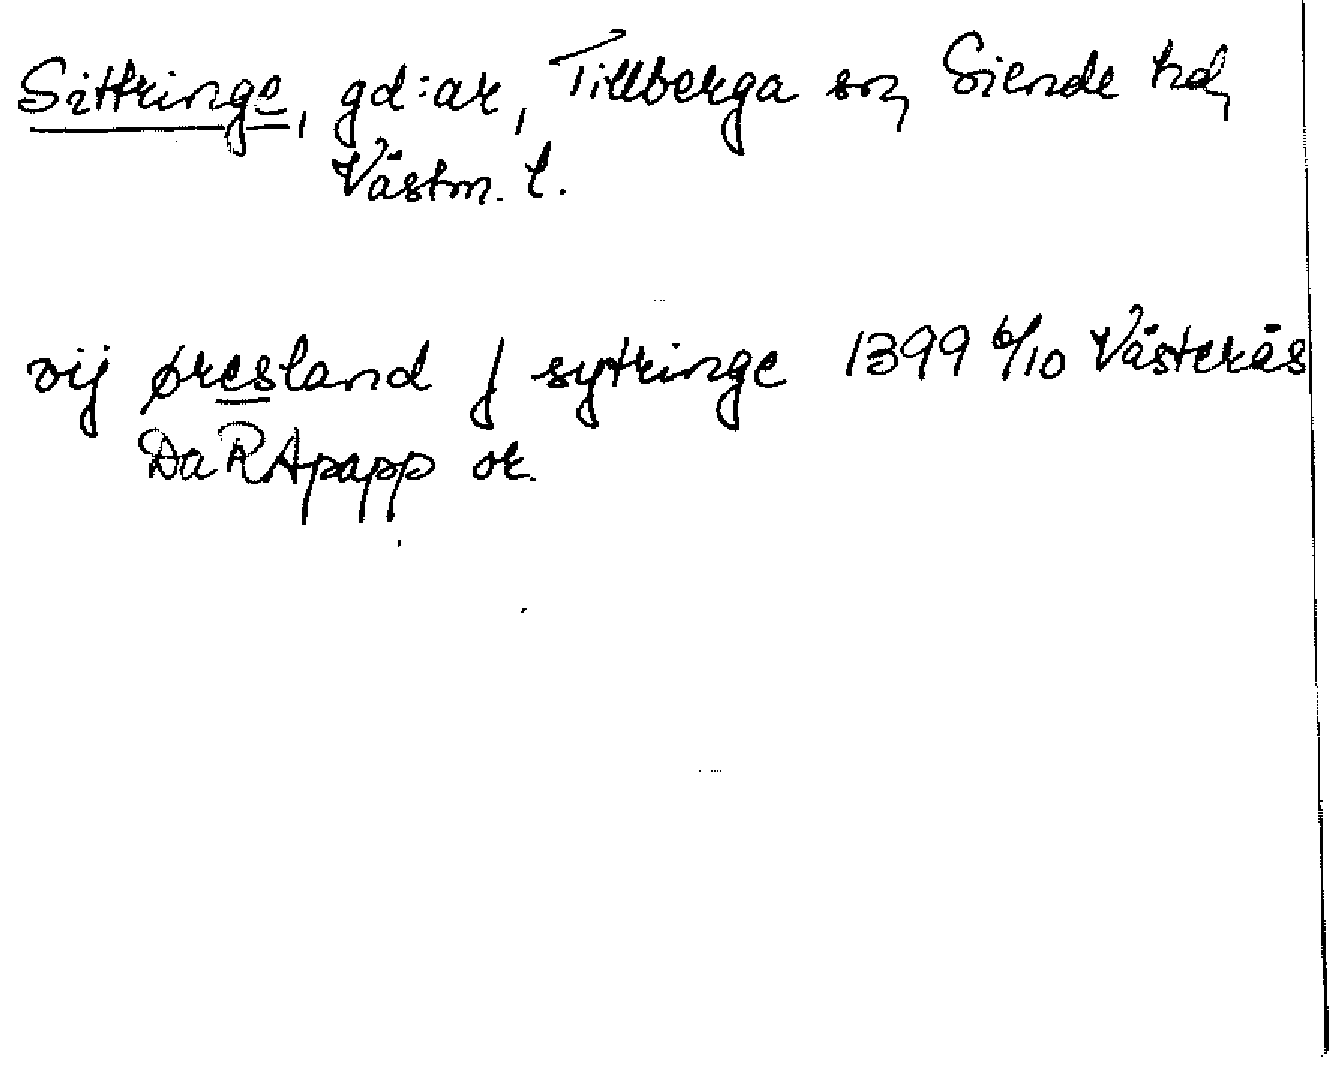 Sittringe, gd:ar, Tillberga sn, Siende hd,
Västm. l.
vij øresland j sytringe 1399 6/10 Västerås
Da RApapp or.